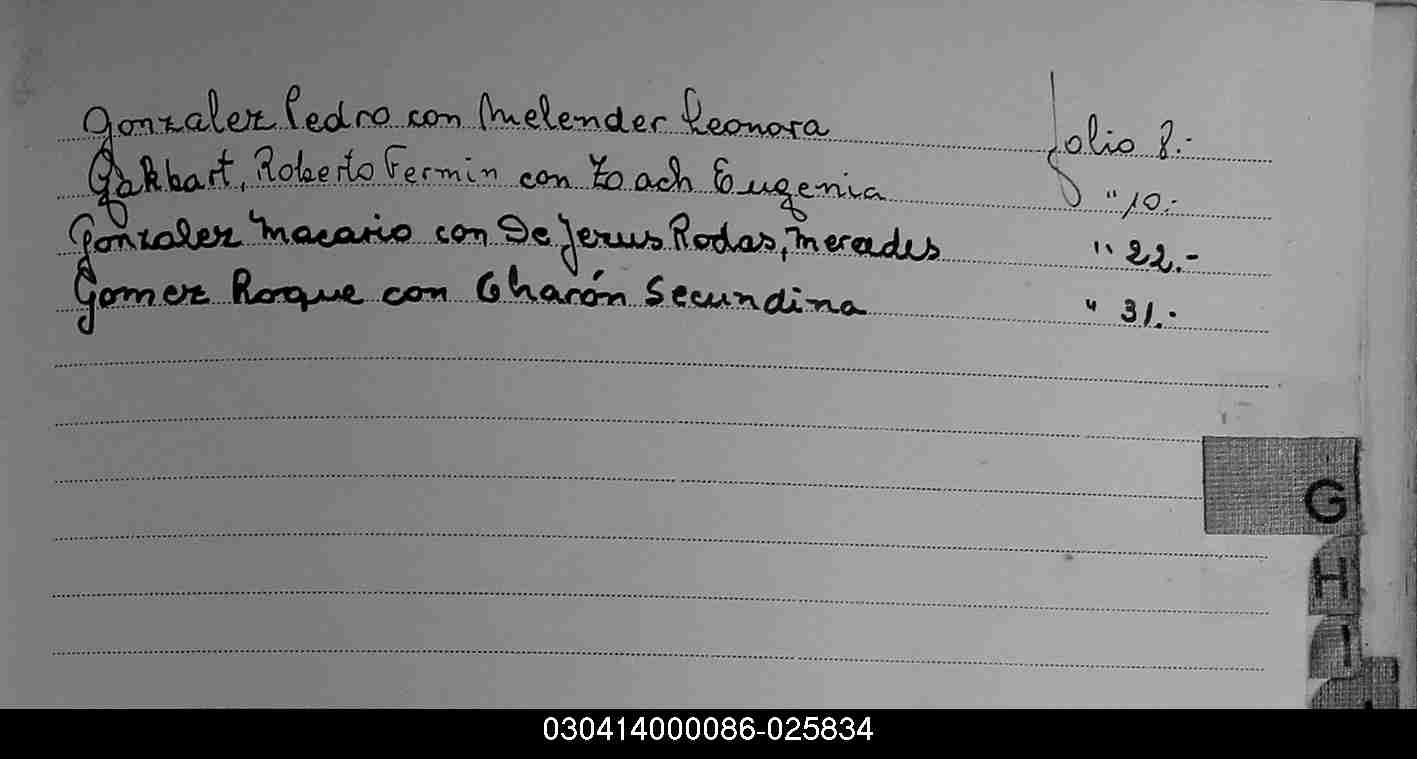 Gonzalez Pedro con Melender Leonora folio 8.-
Gakbart, Roberto Fermin con Zoach Eugenia " 10.-
Gonzalez Macario con De Jerus Rodas, Mercedes " 22.-
Gomez Roque con Charón Secundina " 31.-
G
H
I
030414000086-025834